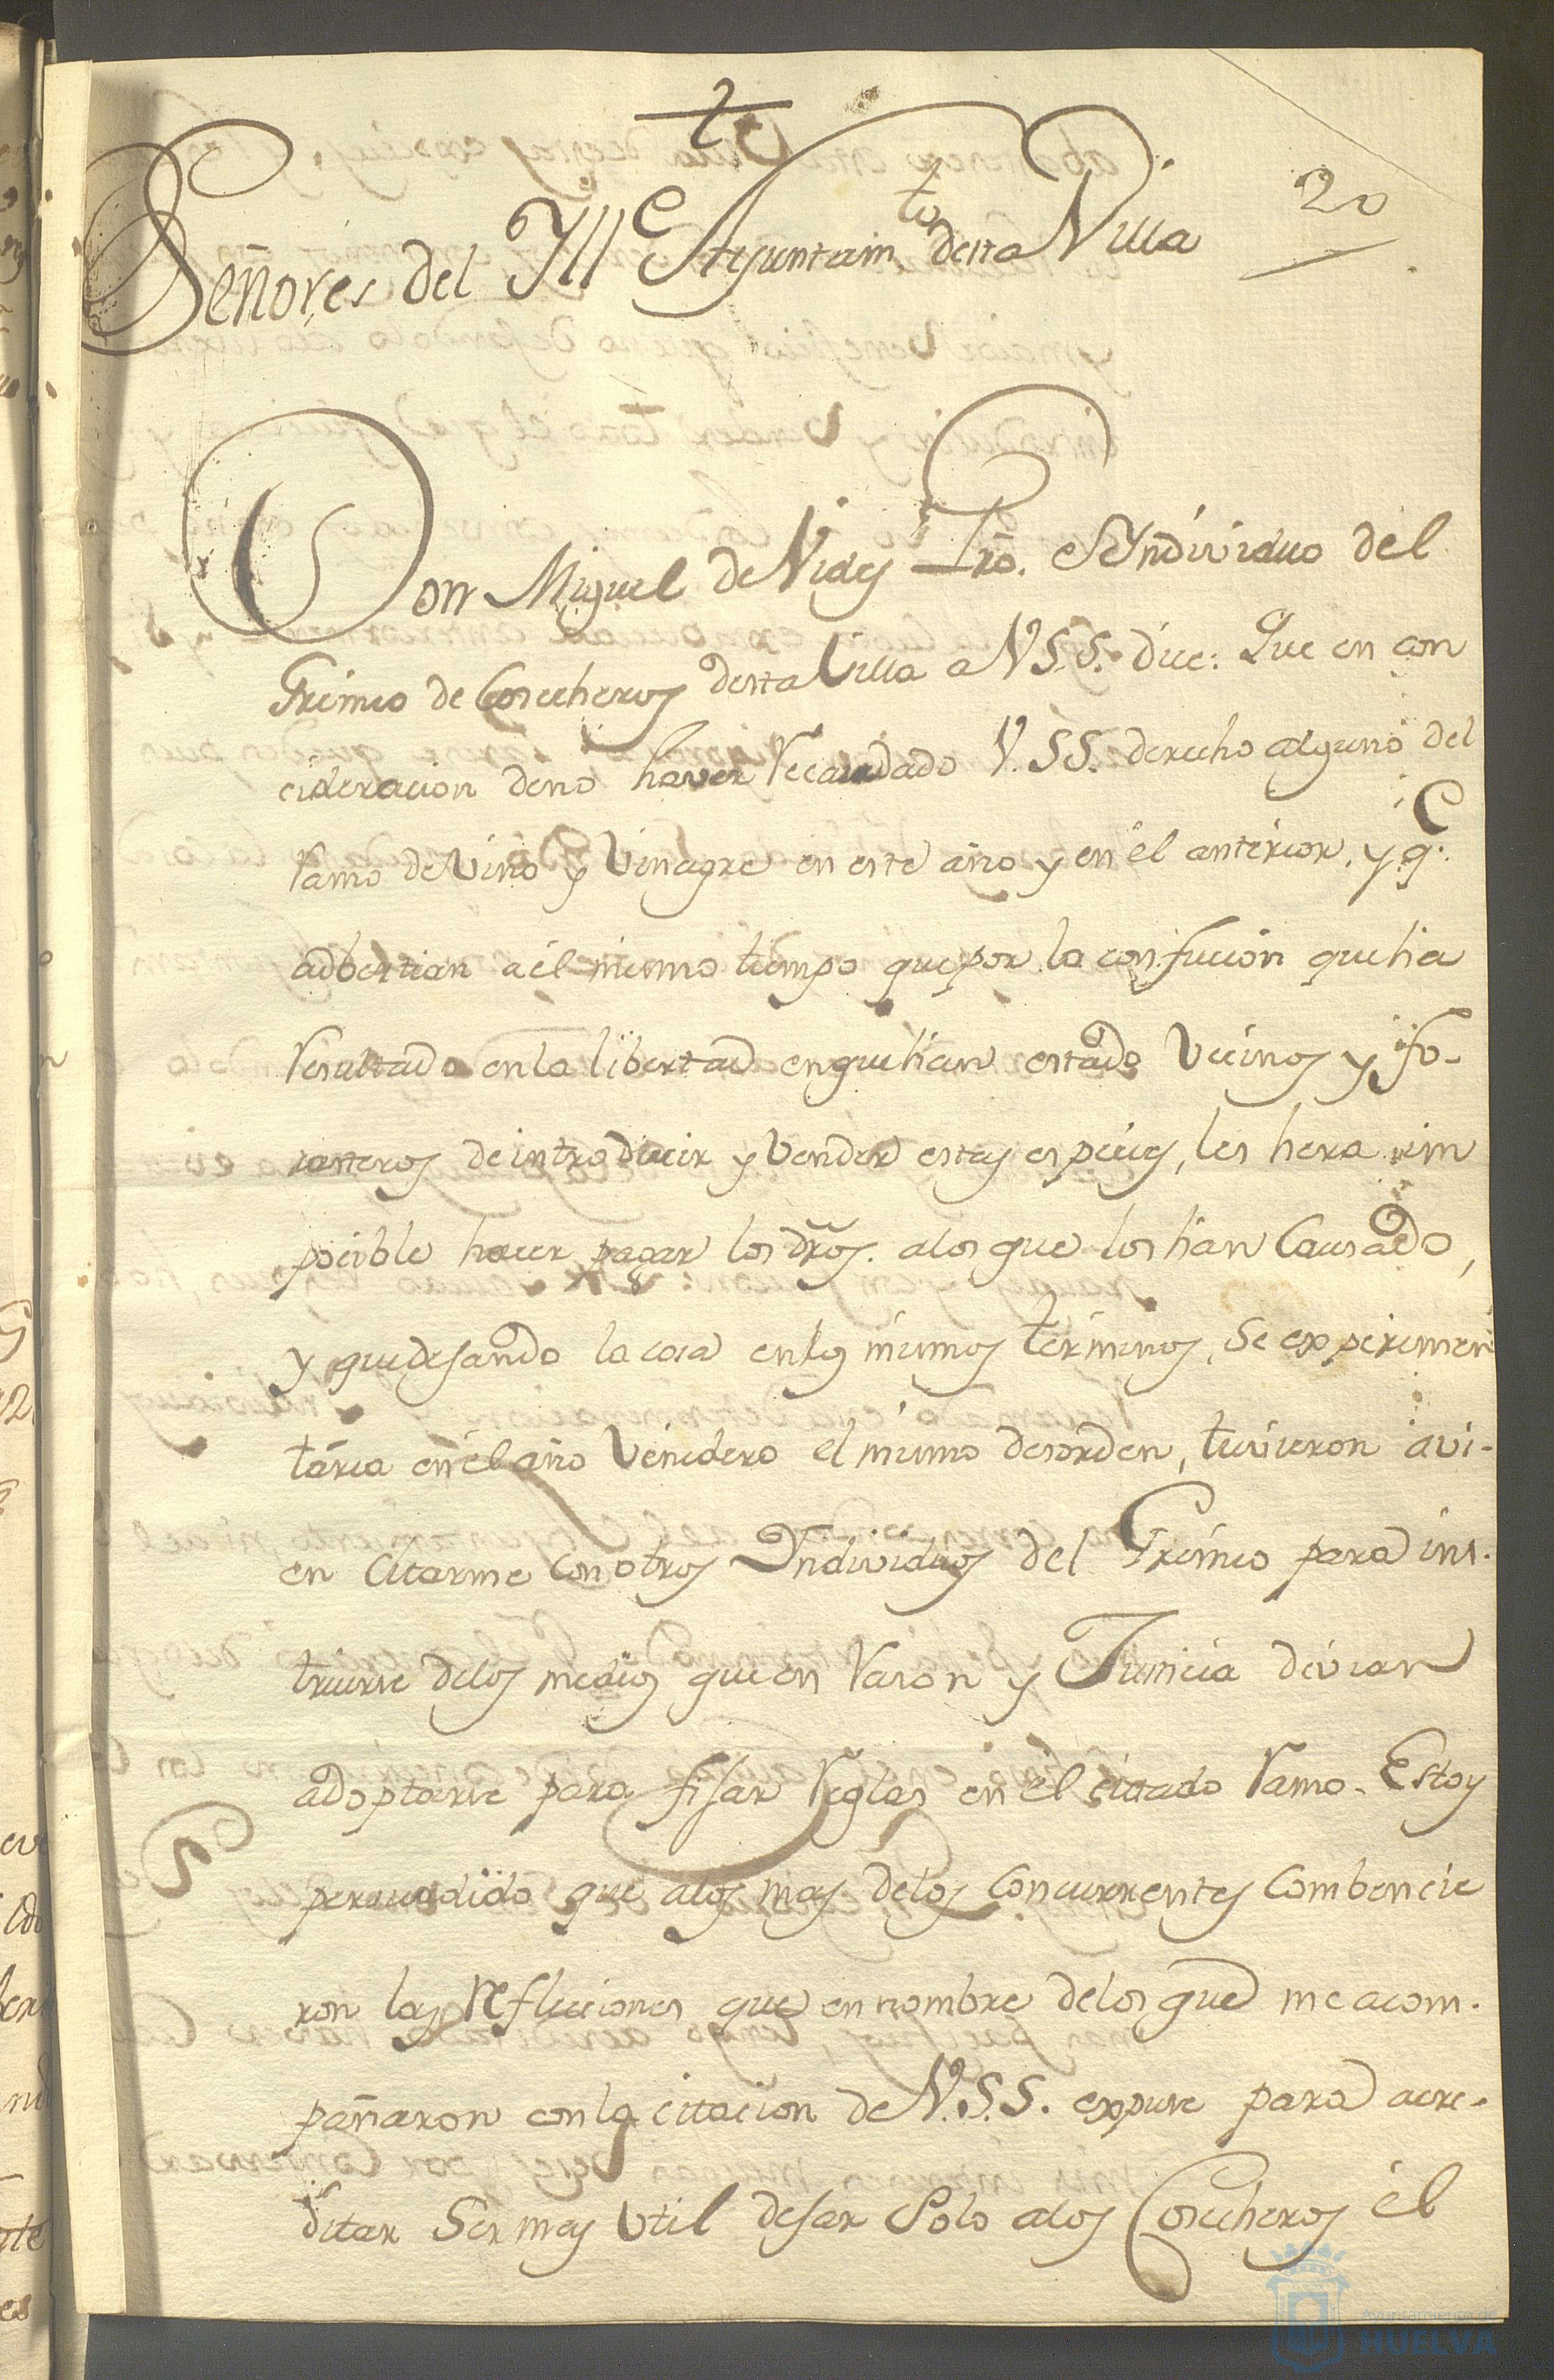 20
Señores del Ylle Ayuntamto desta Villa
Don Miguel de Vides Pro. e Yndividuo del
Gremio de Cosecheros desta Villa a V.S.S. dice: Que en con
cideracion deno haver Recaudado V.SS. derecho alguno del
Ramo de Vino y Vinagre en este año y en el anterior, y qe.
adbertian a el mismo tiempo que por la confucion que ha
Resultado en la libertad en que han estado Vecinos y fo-
rasteros de introducir y Vender estas especies, les hera im
pocible hacer pagar los dros. alos que los han Causado,
y que desando la cosa en los mismos terminos, Se experimen
taria en el año Venidero el mismo desorden, tuvieron avi-
en Citarme con otros Yndividuos del Gremio para ins-
truirse delos medios que en Rason y Justicia devian
adoptarse para fisar Reglas en el citado Ramo. Estoy
persuadido que alos mas delos Concurrentes Combencie
ron las reflecciones que en nombre delos que me acom-
pañaron con la citacion de V.S.S. expuse para acre-
ditar Ser mas Util desar Solo alos Cosecheros el
Ayuntamiento de
HUELVA